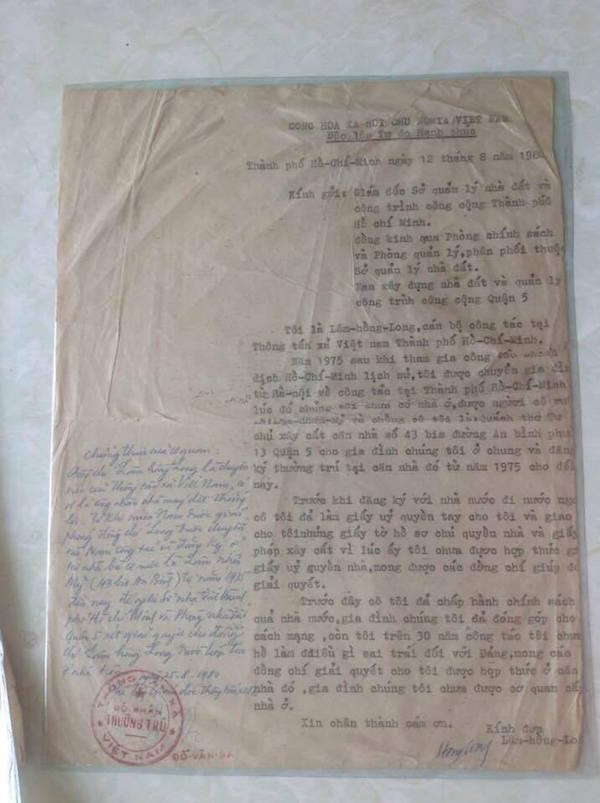 CONG HOA XA HOI CHU NGHIA VIỆT NAM
Độc lập Tự do Hạnh phúc
Thành phố Hồ-Chí-Minh ngày 12 tháng 8 năm 198
Kính gửi: Giám đốc Sở quản lý nhà đất và
công trình công cộng Thành phố
Hồ chí Minh.
đồng kính qua Phòng chính sách
và Phòng quản lý,phân phối thuộc
Sở quản lý nhà đất.
Ban xây dựng nhà đất và quản lý
công trình công cộng Quận 5
Tôi là Lâm-hồng-Long,cán bộ công tác tại
Thông tấn xã Việt nam Thành phố Hồ-Chí-Minh.
Năm 1975 sau khi tham gia công tác chiến
dịch Hồ-Chí-Minh lịch sử,tôi được chuyển gia đìn
từ Hà-nội về công tác tại Thành phố Hồ-Chí-Minh
lúc đó chúng tôi chưa có nhà ở,được người cô
và chồng cô tôi là Quách thơ
chủ xây cất căn nhà số 43 bis đường An bình phư
13 Quận 5 cho gia đình chúng tôi ở chung và đăng
ký thường trú tại căn nhà đó từ năm 1975 cho đến
nay.
Trước khi đăng ký với nhà nước đi nước ngo
cô tôi để làm giấy uỷ quyền tay cho tôi và giao
cho tôinhững giấy tờ hồ sơ chủ quyền nhà và giấy
phép xây cất vì lúc ấy tôi chưa được hợp thức
giấy uỷ quyền nhà,mong được các đồng chí giúp đ
giải quyết.
Trước đây cô tôi đã chấp hành chính sách
quả nhà nước,gia đình chúng tôi đã đóng góp cho
cách mạng ,còn tôi trên 30 năm công tác tôi chưa
hề làm điều gì sai trái đối với Đảng,mong các
đồng chí giải quyết cho tôi được hợp thức ở căn
nhà đó ,gia đình chúng tôi chưa được cơ quan cấ
nhà ở.
Xin chân thành cám ơn.
Kính đơn
Lâm-hồng-Lo
Chứng thực của cơ quan:
Đồng chí Lâm hồng Long là chuyên
viên của Thông tấn xã Việt Nam,
vợ là công nhân nhà máy dệt Thắng
lợi. Từ khi miền Nam được giải
phóng đồng chí Long được chuyển
vào Nam công tác và
trú nhà bà cô ruột là Lâm
Mỹ (43 bis An Bình) từ năm 1975
đến nay. đề nghị Sở nhà đất thành
phố Hồ chí Minh và Phòng nhà đất
Quận 5 xét giải quyết cho đồng
chí Lâm hồng Long được hợp thức
ở nhà trên. ngày 25.8.1980
THÔNG TẤN XÃ
BỘ PHẬN
VIỆT NAM
ĐỖ-VĂN-BA